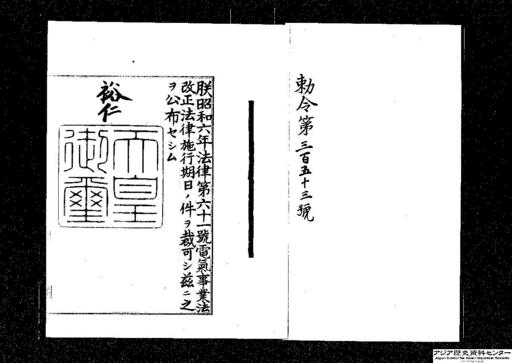 勅令第三百五十三號
朕昭和六年法律第六十一號電氣事業法
改正法律施行期日ノ件ヲ裁可シ茲ニ之
ヲ公布セシム
裕仁
天皇
御璽
アジア歴史資料センター
Japan Center for Asian Historical Records